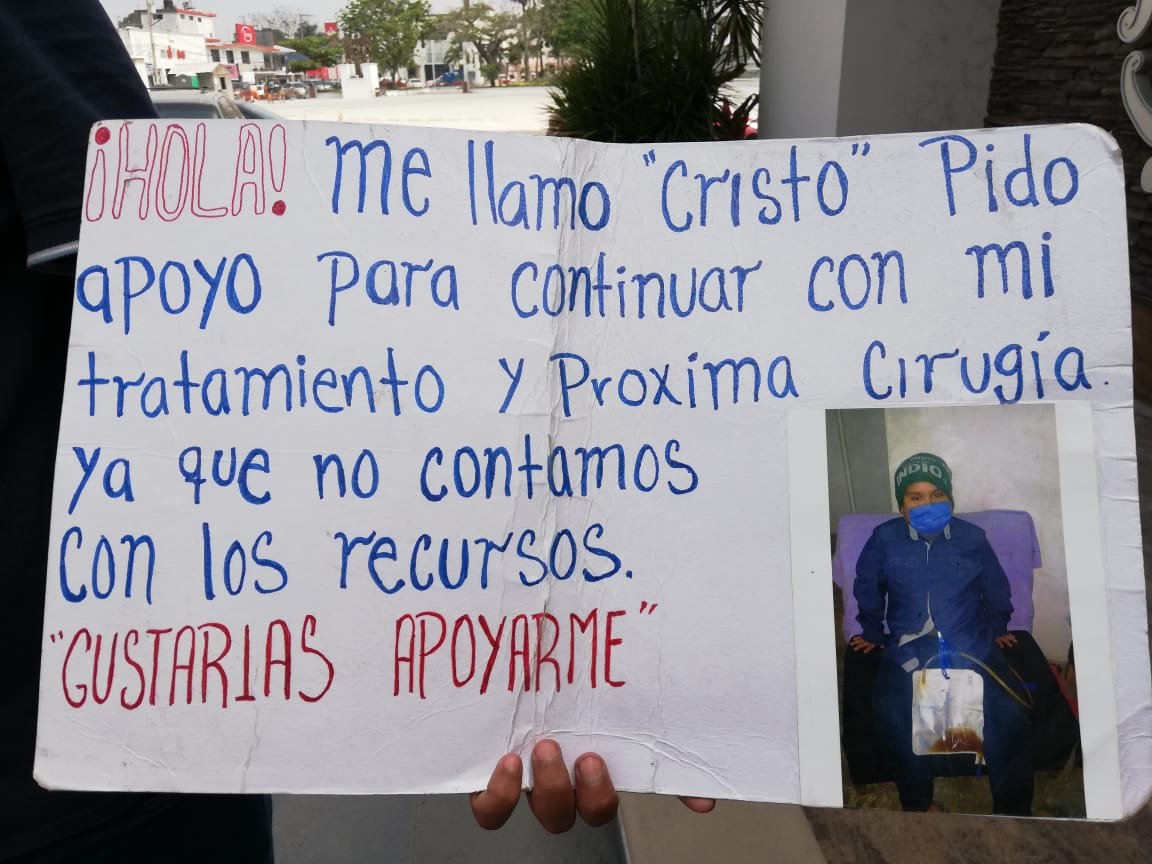 ¡HOLA! Me llamo "Cristo" Pido
apoyo para continuar con mi
tratamiento y Proxima Cirugía.
ya que no contamos
con los recursos.
"GUSTARIAS APOYARME"
INDIO